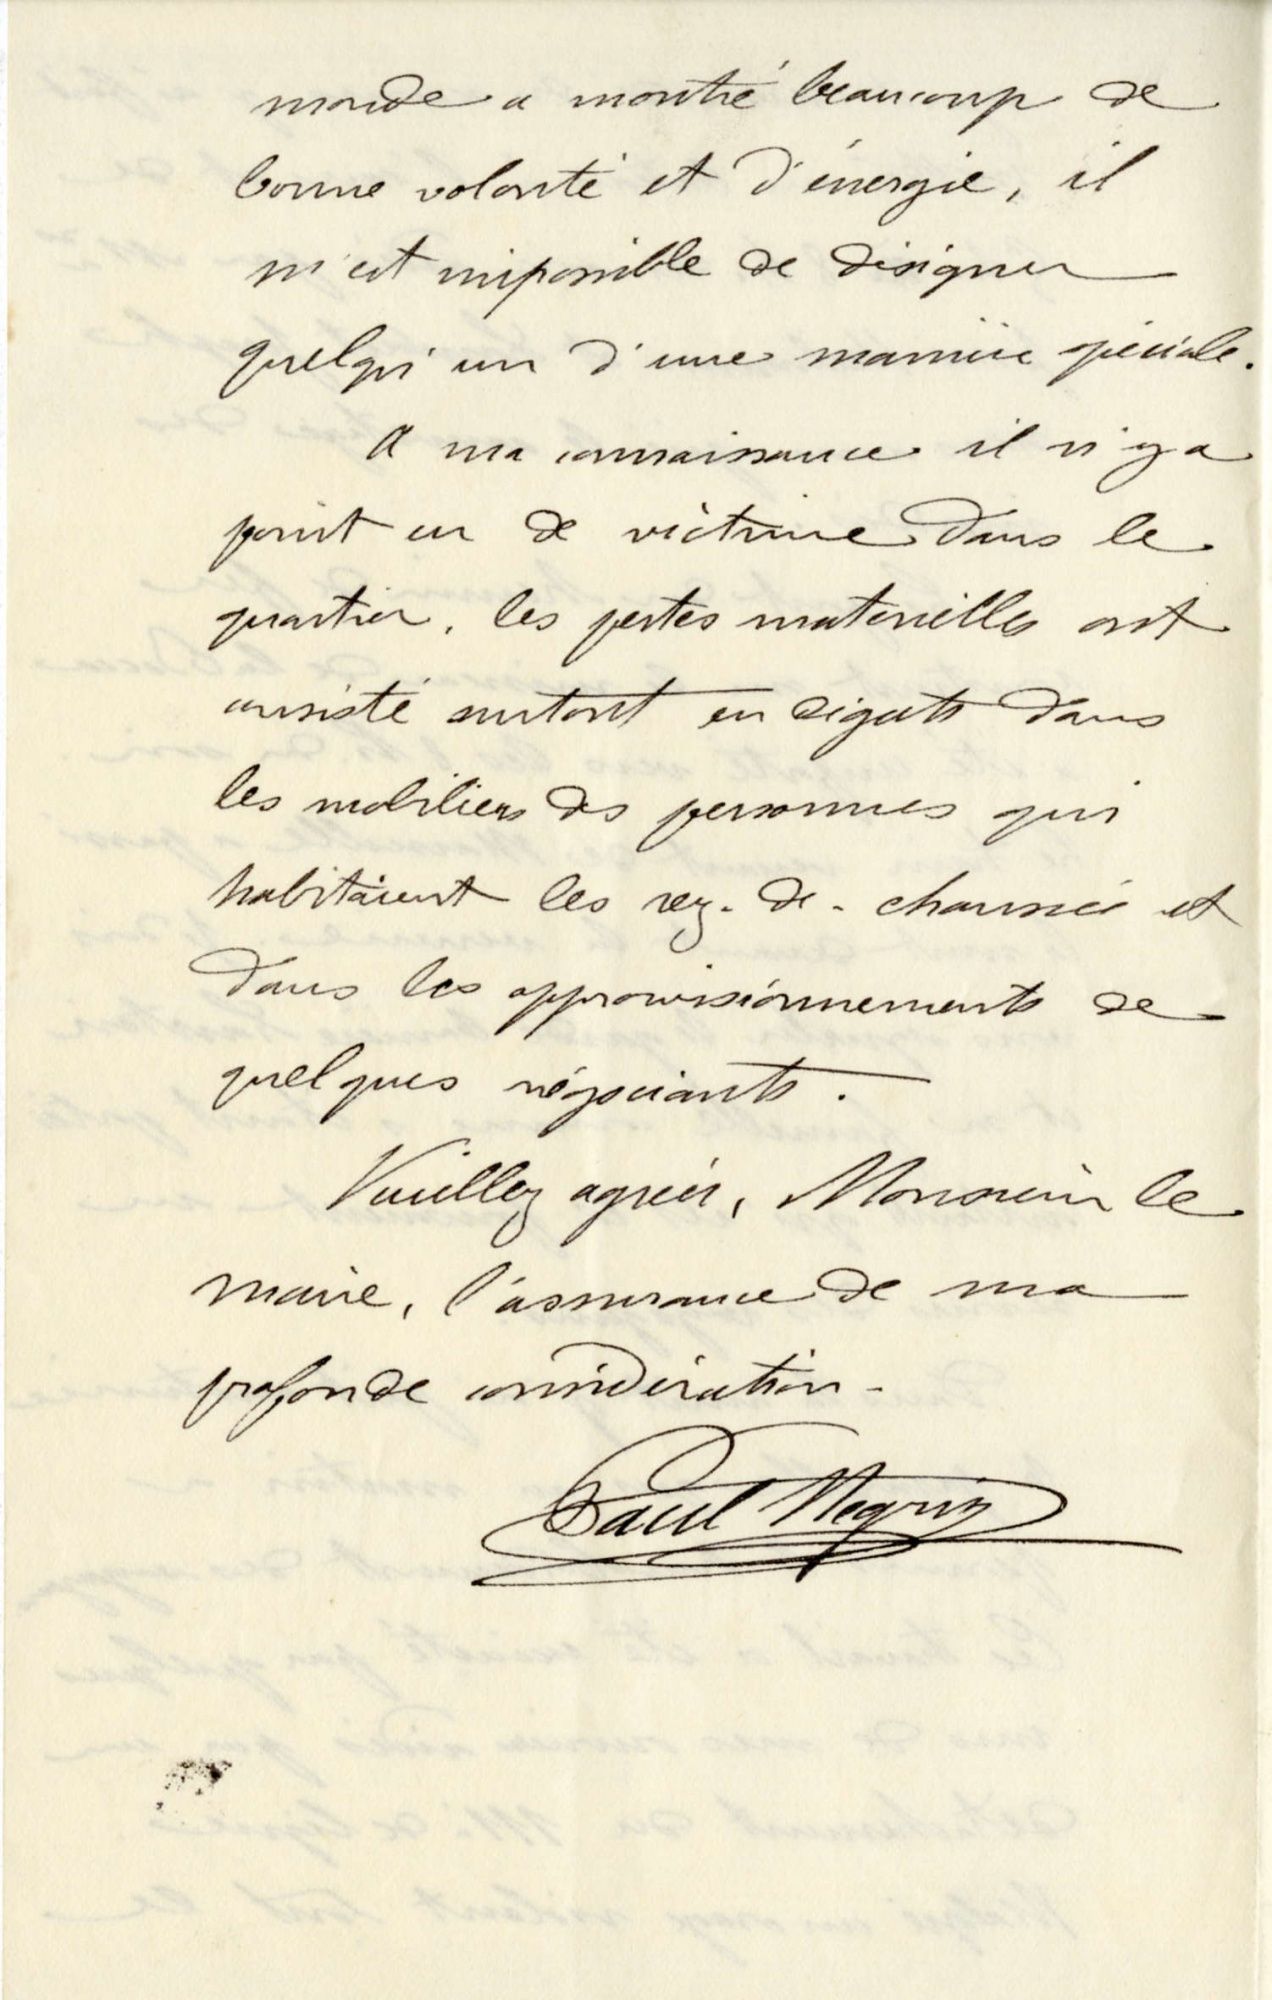 monde a montré beaucoup de
bonne volonté et d'énergie, il
m'est impossible de désigner
quelqu'un d'une manière spéciale.
A ma connaissance il n'y a
point eu de victime dans le
quartier, les pertes materielles ont
consisté surtout en dégats dans
les mobiliers des personnes qui
habitaient les rez-de-chaussée et
dans les approvisionnements de
quelques négociants.
Veuillez agréer, Monsieur le
maire, l'assurance de ma
profonde considération.
Paul Negrin